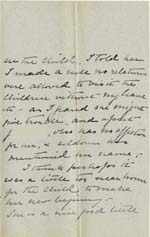 see the child. I told her
I made a rule no relations
were allowed to visit the
children without my leave
as I found one might
give trouble, and upset
has no affection
for me, & seldom has
mentioned my name.
I think perhaps it
was a little too near home
for the child to make
her new beginning.
She is a nice good little